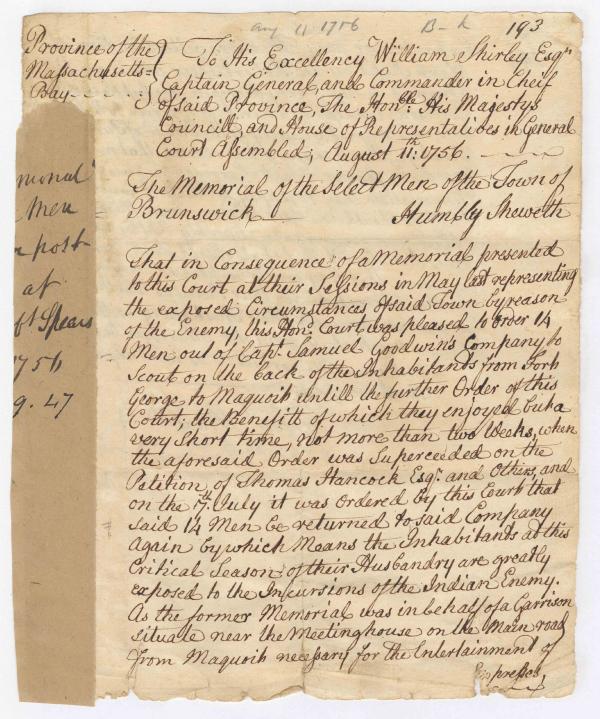 Aug 11 1756 B-k 193
Province of the
Massachusetts=
Bay
To His Excellency William Shirley Esqr
Captain General, and Commander in Cheif
of said Province, The Honble: His Majestys
Councill, and House of Representatives in General
Court Assembled, August 11th: 1756.
The Memorial of the Select Men of the Town of
Brunswick Humbly Sheweth
That in Consequence of a Memorial presented
to this Court at their Sessions in May last representing
the exposed Circumstances of said Town by reason
of the Enemy, this Hono Court was pleased to order 14
Men out of Capt. Samuel Goodwin's Company to
Scout on the back of the Inhabitants from Fort
George to Maquoit untill the further Order of this
Court; the Benefitt of which they enjoyed but a
very short time, not more than two Weeks, when
the aforesaid Order was Superceeded on the
Petition, of Thomas Hancock Esqr. and Others, and
on the 7th July it was ordered by this Court that
said 14 Men be returned to said Company
Again by which Means the Inhabitants at this
Critical Season of their Husbandry are greatly
exposed to the Incursions of the Indian Enemy.
As the former Memorial was in behalf of a Garrison
situate near the Meetinghouse on the Main road
from Maquoit necessary for the Entertainment of
Expresses,
morial
Men
post
at
Spears
1756
9. 47